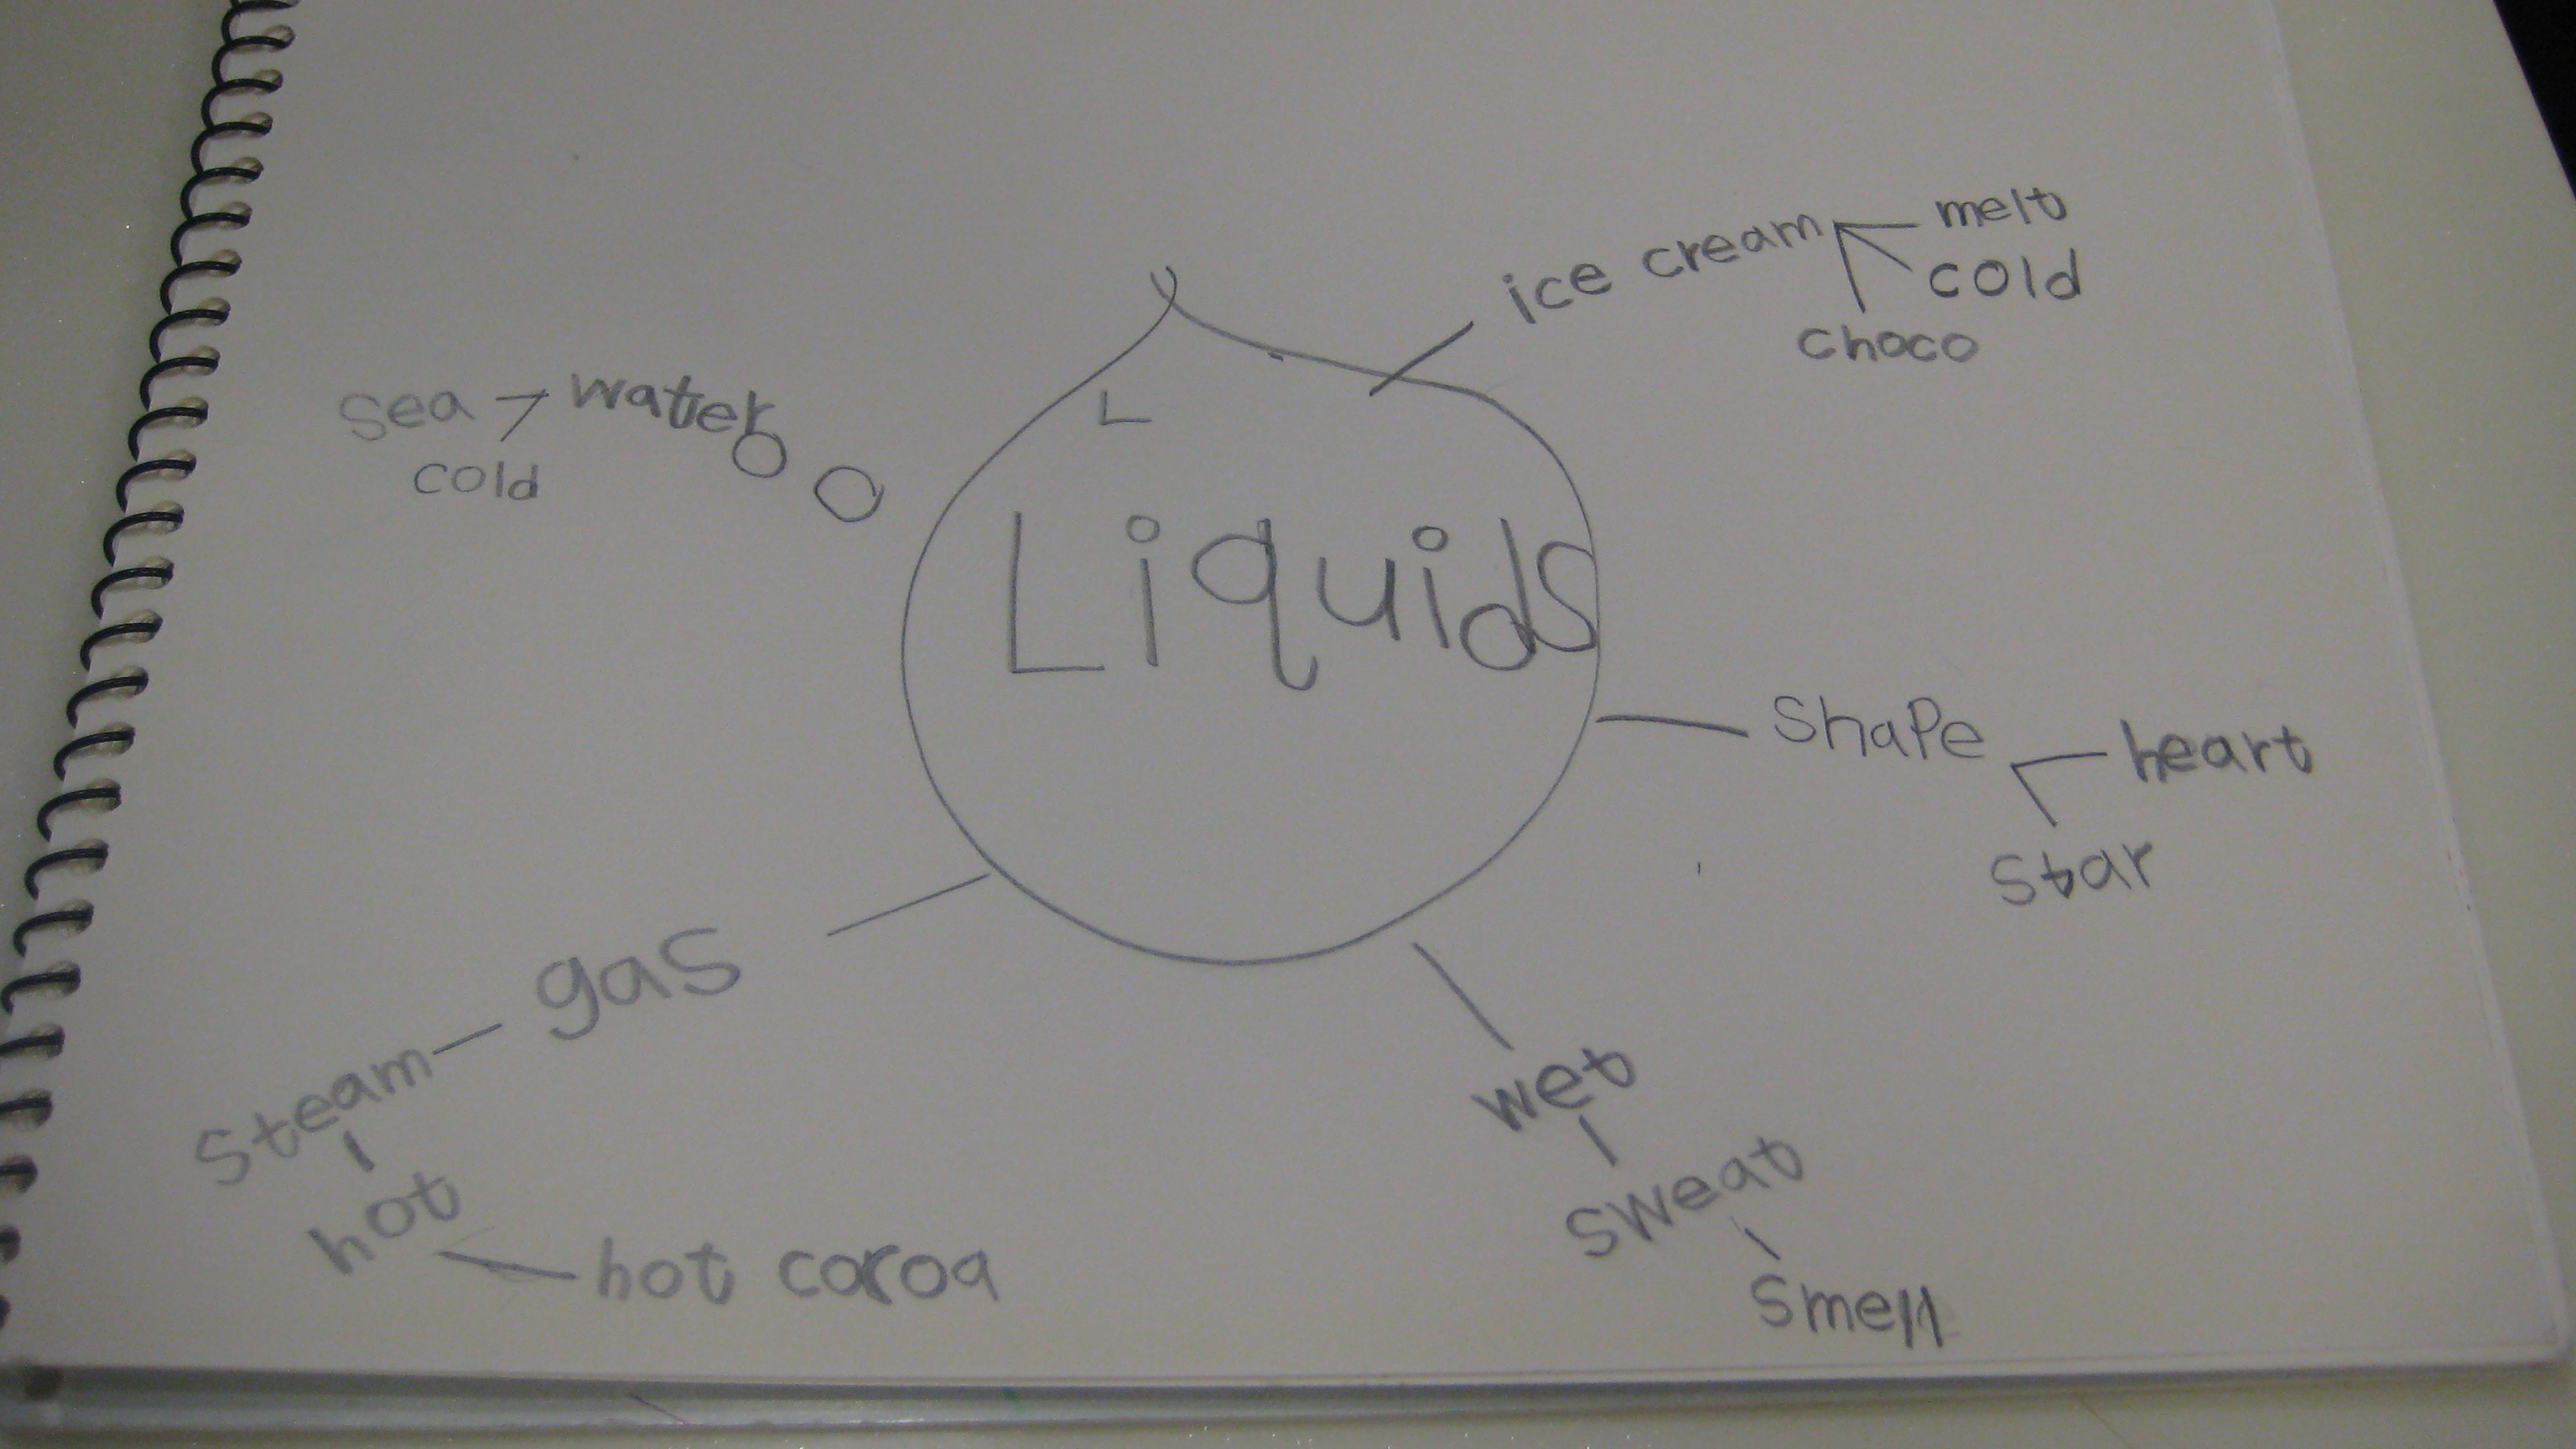 Liquids
ice cream
melt
cold
choco
sea
water
cold
shape
heart
star
gas
steam
hot
hot cocoa
wet
sweat
smell